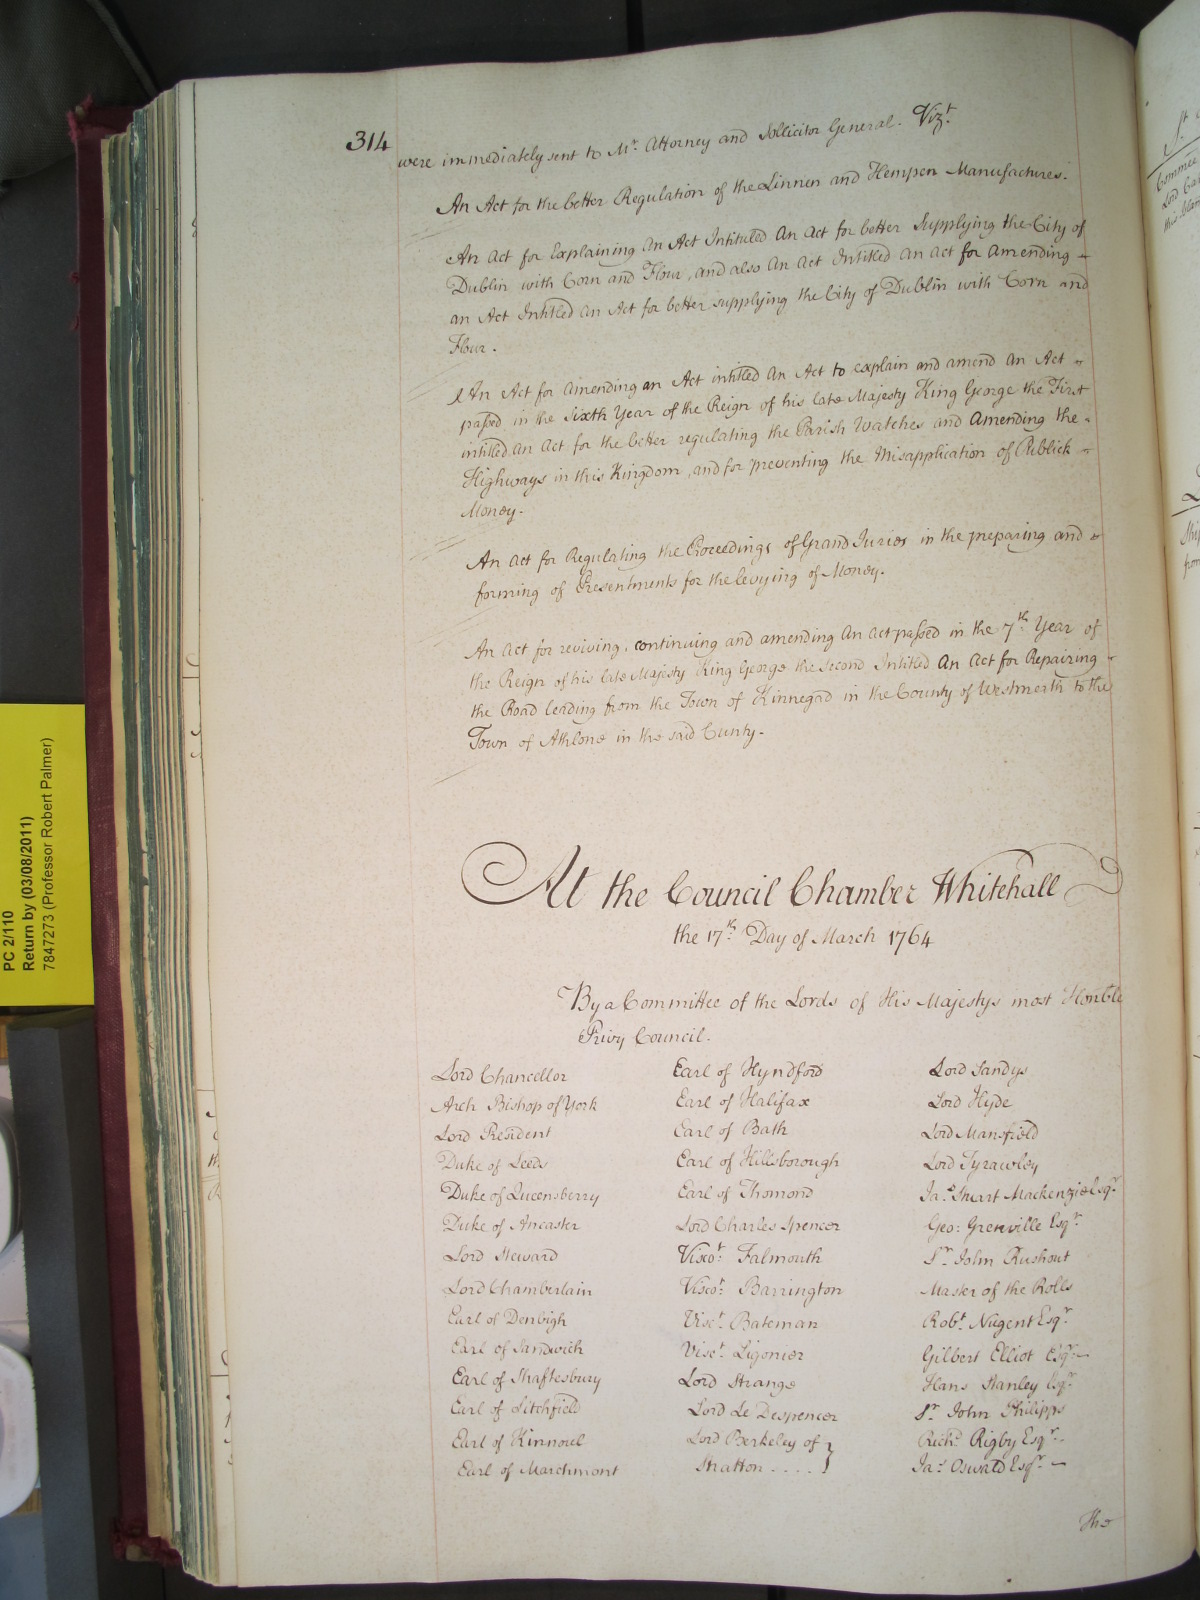 314
were immediately sent to Mr. Attorney and Sollicitor General. Vizt.
An Act for the better Regulation of the Linnen and Hempen Manufactures.
An Act for Explaining An Act Intituled An Act for better Supplying the City of
Dublin with Corn and Flour, and also An Act Intitled An Act for Amending
an Act Intitled An Act for better supplying the City of Dublin with Corn and
Flour.
An Act for Amending an Act intitled An Act to explain and amend An Act
passed in the Sixth Year of the Reign of his late Majesty King George the First
intitled An Act for the better regulating the Parish Watches and Amending the
Highways in this Kingdom, and for preventing the Misapplication of Publick
Money.
An Act for Regulating the Proceedings of Grand Juries in the preparing and
forming of Presentments for the levying of Money.
An Act for reviving, continuing and amending An Act passed in the 7th. Year of
the Reign of his late Majesty King George the Second Intitled An Act for Repairing
the Road leading from the Town of Kinnegad in the County of Westmeath to the
Town of Athlone in the said Cunty.
At the Council Chamber Whitehall
the 17th. Day of March 1764
By a Committee of the Lords of His Majestys most Honble
Privy Council.
Lord Chancellor Earl of Hyndford Lord Sandys
Arch Bishop of York Earl of Halifax Lord Hyde
Lord President Earl of Bath Lord Mansfield
Duke of Leeds Earl of Hillsborough Lord Tyrawley
Duke of Queensberry Earl of Thomond Jas. Stuart Mackenzie Esqr.
Duke of Ancaster Lord Charles Spencer Geo: Grenville Esqr.
Lord Steward Viscot. Falmouth Sr. John Rushout
Lord Chamberlain Viscot. Barrington Master of the Rolls
Earl of Denbigh Visct. Bateman Robt. Nugent Esqr.
Earl of Sandwich Visct. Ligonier Gilbert Elliot Esqr.
Earl of Shaftesbury Lord Strange Hans Stanley Esqr.
Earl of Litchfield Lord Le Despencer Sr. John Philipps
Earl of Kinnoul Lord Berkeley of } Richd. Rigby Esqr.
Earl of Marchmont Stratton .... } Jas. Oswald Esqr.
The
PC 2/110
Return by (03/08/2011)
7847273 (Professor Robert Palmer)